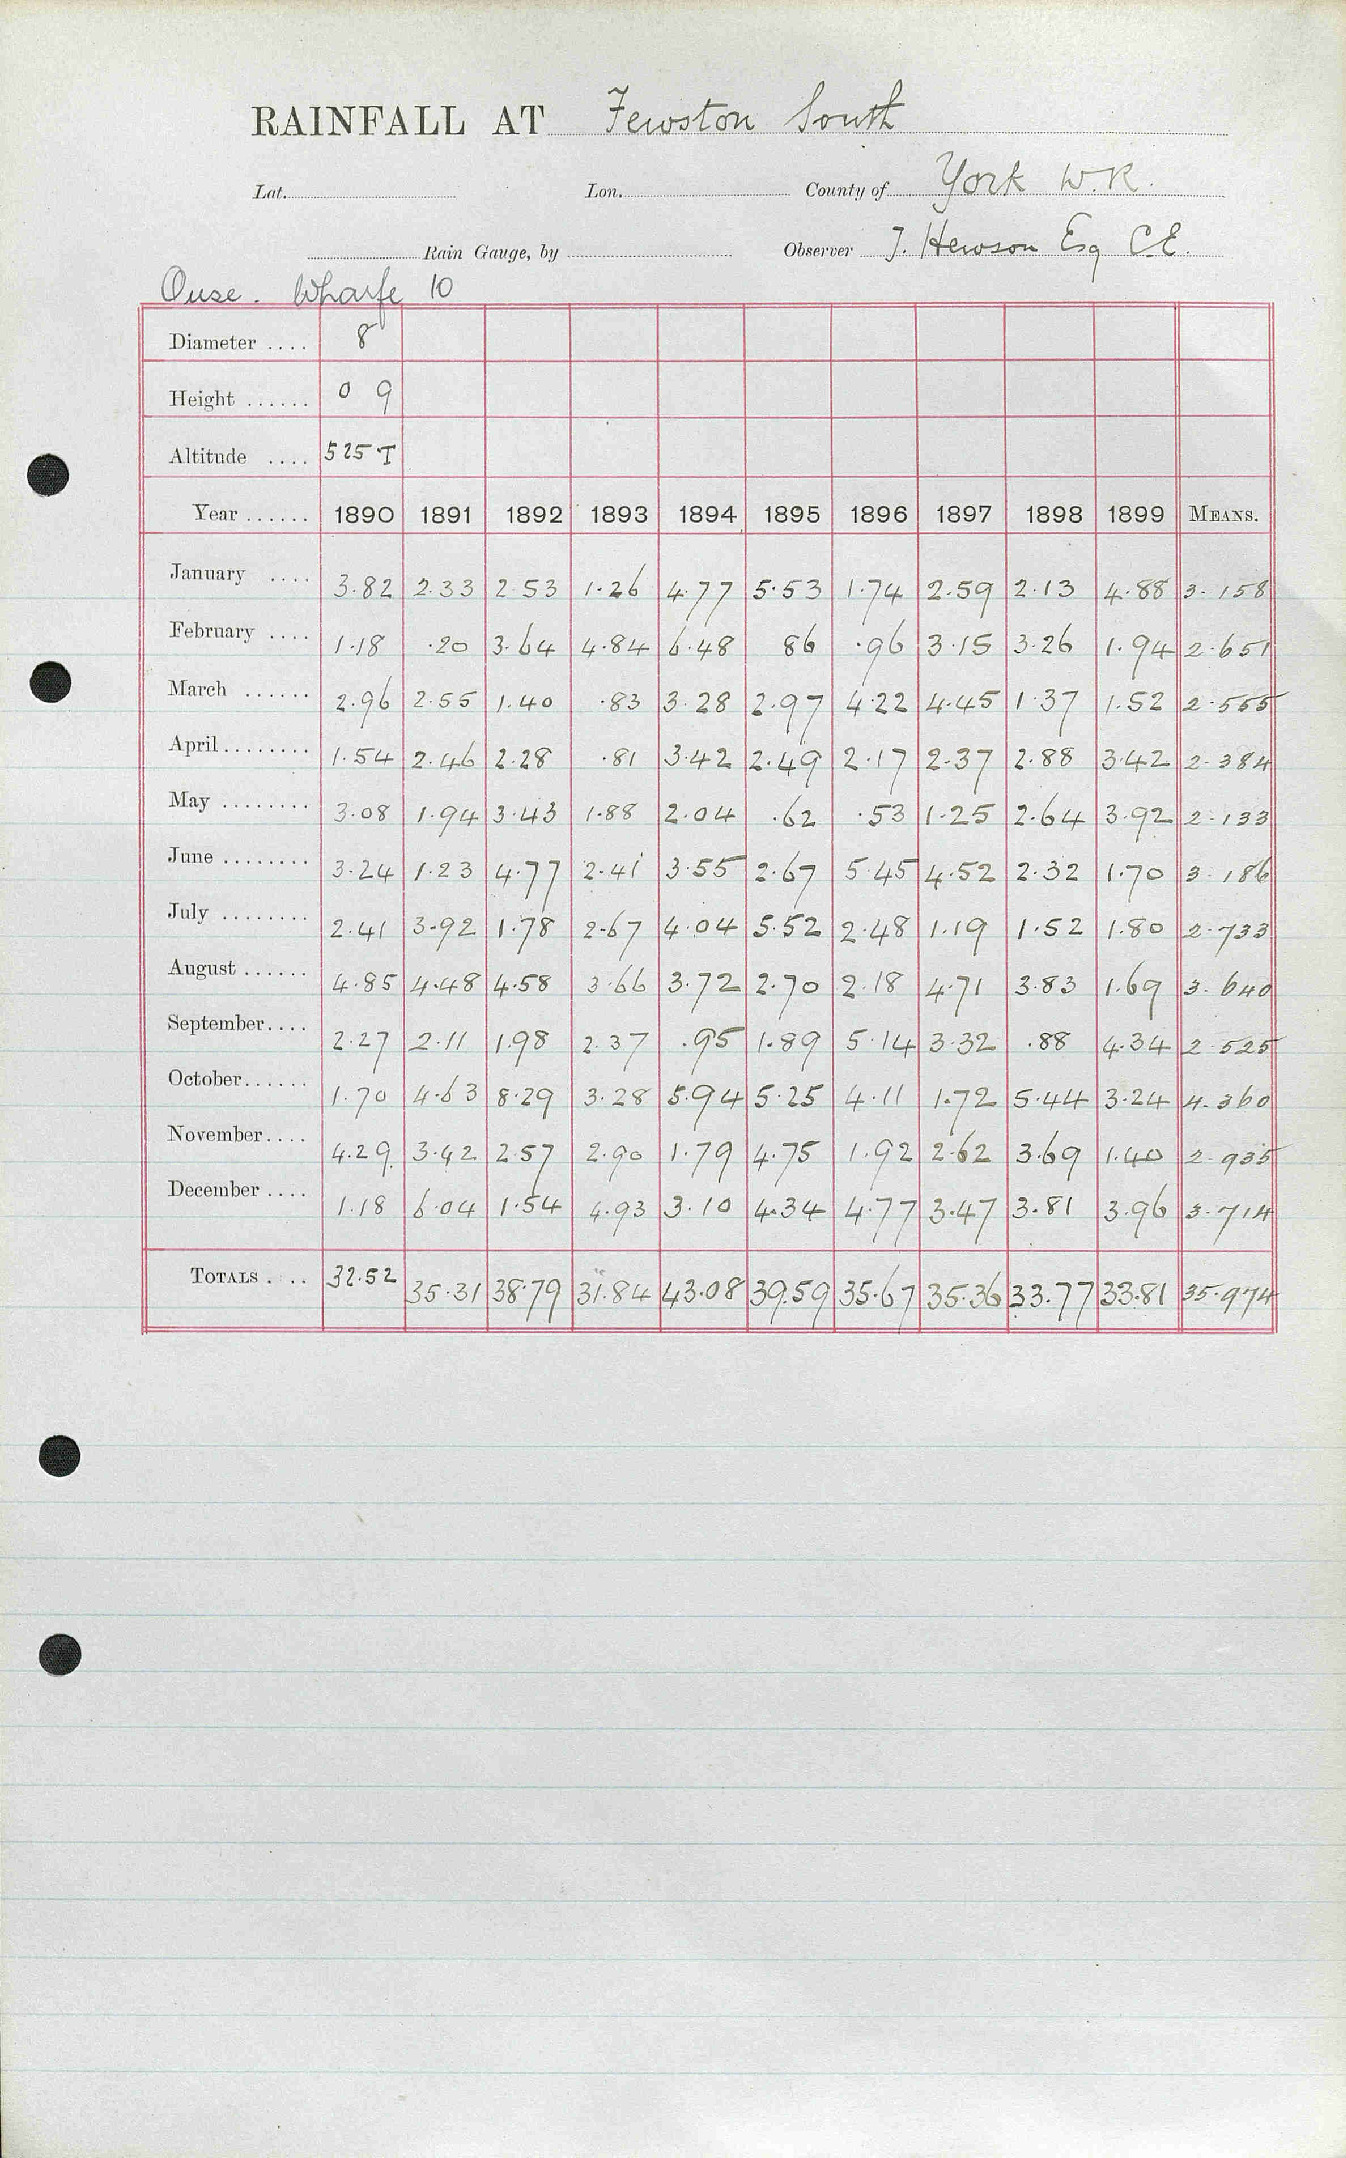 RAINFALL AT Fewston South
Lat. Lon. County of York W.R.
Rain Gauge, by Observer J. Hewson Esq C.E.
Ouse. Wharfe 10
Diameter .... 8
Height ...... 0 9
Altitude .... 525 T
Year ...... 1890 1891 1892 1893 1894 1895 1896 1897 1898 1899 MEANS.
January .... 3.82 2.33 2.53 1.26 4.77 5.53 1.74 2.59 2.13 4.88 3.158
February .... 1.18 .20 3.64 4.84 6.48 86 .96 3.15 3.26 1.94 2.651
March ...... 2.96 2.55 1.40 .83 3.28 2.97 4.22 4.45 1.37 1.52 2.555
April ........ 1.54 2.46 2.28 .81 3.42 2.49 2.17 2.37 2.88 3.42 2.384
May ........ 3.08 1.94 3.43 1.88 2.04 .62 .53 1.25 2.64 3.92 2.133
June ........ 3.24 1.23 4.77 2.41 3.55 2.67 5.45 4.52 2.32 1.70 3.186
July ........ 2.41 3.92 1.78 2.67 4.04 5.52 2.48 1.19 1.52 1.80 2.733
August ...... 4.85 4.48 4.58 3.66 3.72 2.70 2.18 4.71 3.83 1.69 3.640
September .... 2.27 2.11 1.98 2.37 .95 1.89 5.14 3.32 .88 4.34 2.525
October ...... 1.70 4.63 8.29 3.28 5.94 5.25 4.11 1.72 5.44 3.24 4.360
November .... 4.29 3.42 2.57 2.90 1.79 4.75 1.92 2.62 3.69 1.40 2.935
December .... 1.18 6.04 1.54 4.93 3.10 4.34 4.77 3.47 3.81 3.96 3.714
TOTALS .... 32.52 35.31 38.79 31.84 43.08 39.59 35.67 35.36 33.77 33.81 35.974